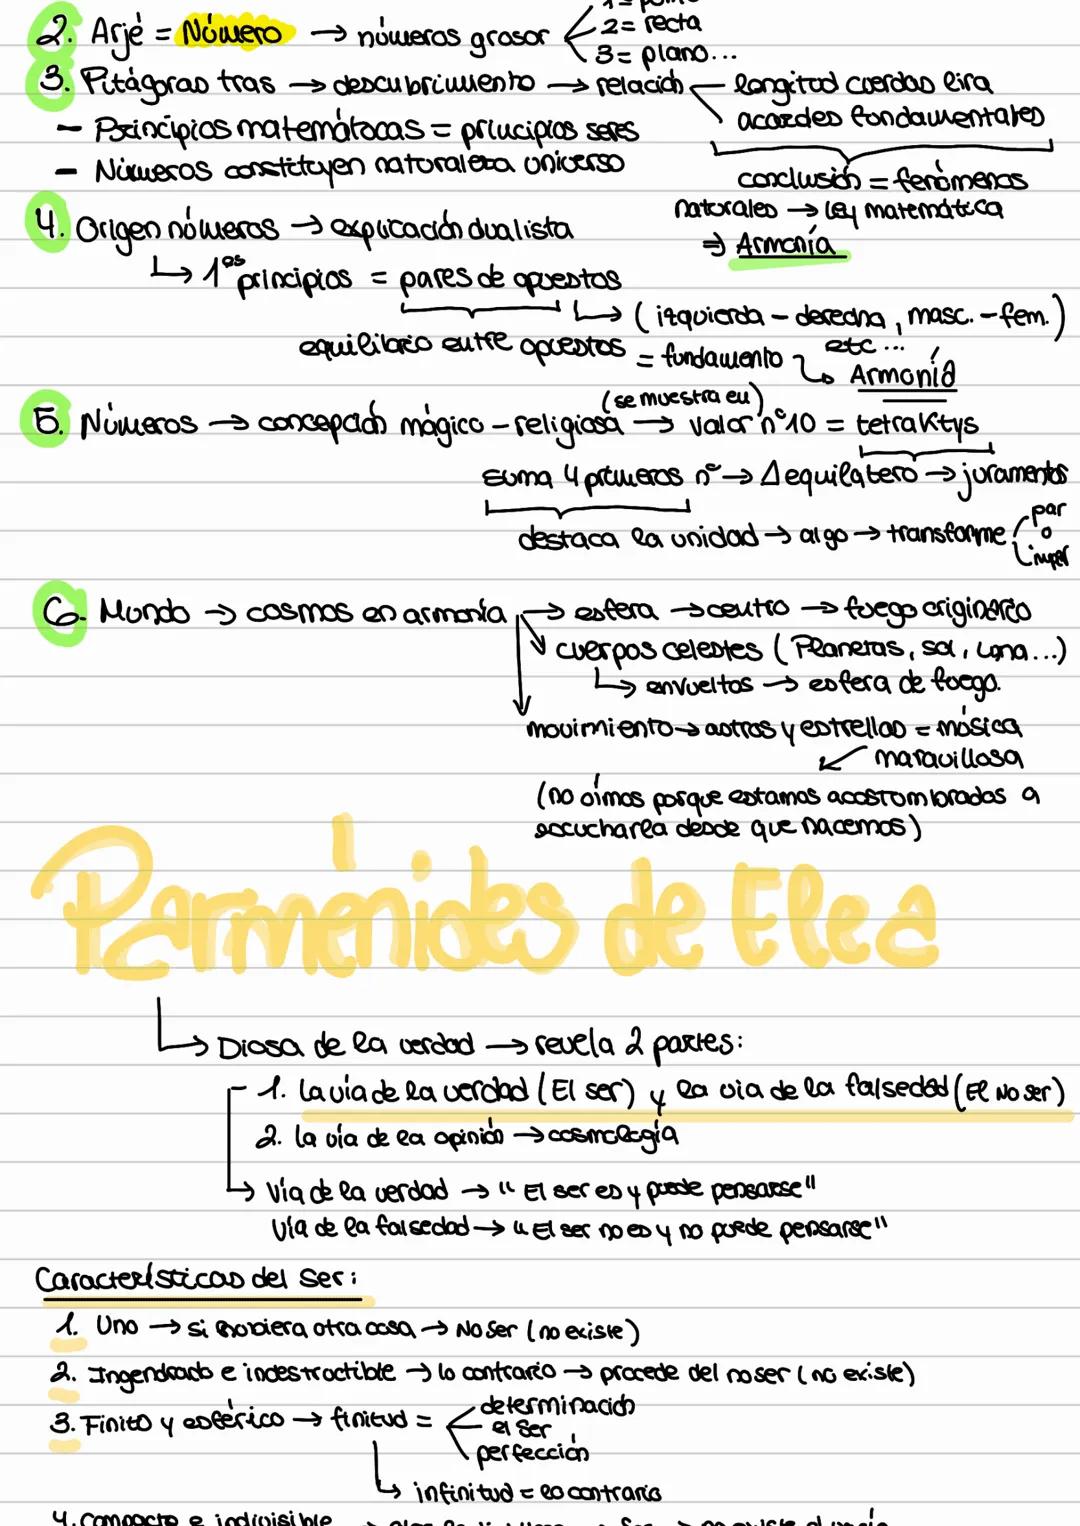 1 = punto
2. Arjé = Número → números grosor 2 = recta
3 = plano...
3. Pitágoras tras → descubrimiento → relación longitud cuerdas lira
acordes fundamentales
- Principios matemátocas = principios seres
- Números constituyen naturaleza universo
conclusión = fenómenos
naturales → ley matemática
⇒ Armonía
4. Origen números → explicación dualista
↳ 1os principios = pares de opuestos
↳ (izquierda - derecha, masc. - fem.)
etc...
equilibrio entre opuestos = fundamento ↳ Armonía
(se muestra en)
5. Números → concepción mágico - religiosa → valor nº 10 = tetraktys
suma 4 primeros nº → Δ equilatero → juramentos
destaca la unidad → algo → transforme par
o
imper
6. Mundo → cosmos en armonía → esfera → centro → fuego originario
cuerpos celestes (Planetas, sol, luna...)
↳ envueltos → esfera de fuego.
movimiento → astros y estrellas = música
maravillosa
(no oímos porque estamos acostumbrados a
escucharla desde que nacemos)
Parménides de Elea
↳ Diosa de la verdad → revela 2 partes:
1. La vía de la verdad (El ser) y la via de la falsedad (El No ser)
2. la vía de la opinión → cosmología
↳ Vía de la verdad → "El ser es y puede pensarse"
Vía de la falsedad → "El ser no es y no puede pensarse"
Características del ser:
1. Uno → si hubiera otra cosa → No ser (no existe)
2. Ingendrado e indestructible → lo contrario → procede del no ser (no existe)
3. Finito y esférico → finitud = determinación
el ser
perfección
↳ infinitud = lo contrario
4. Compacto e indivisible